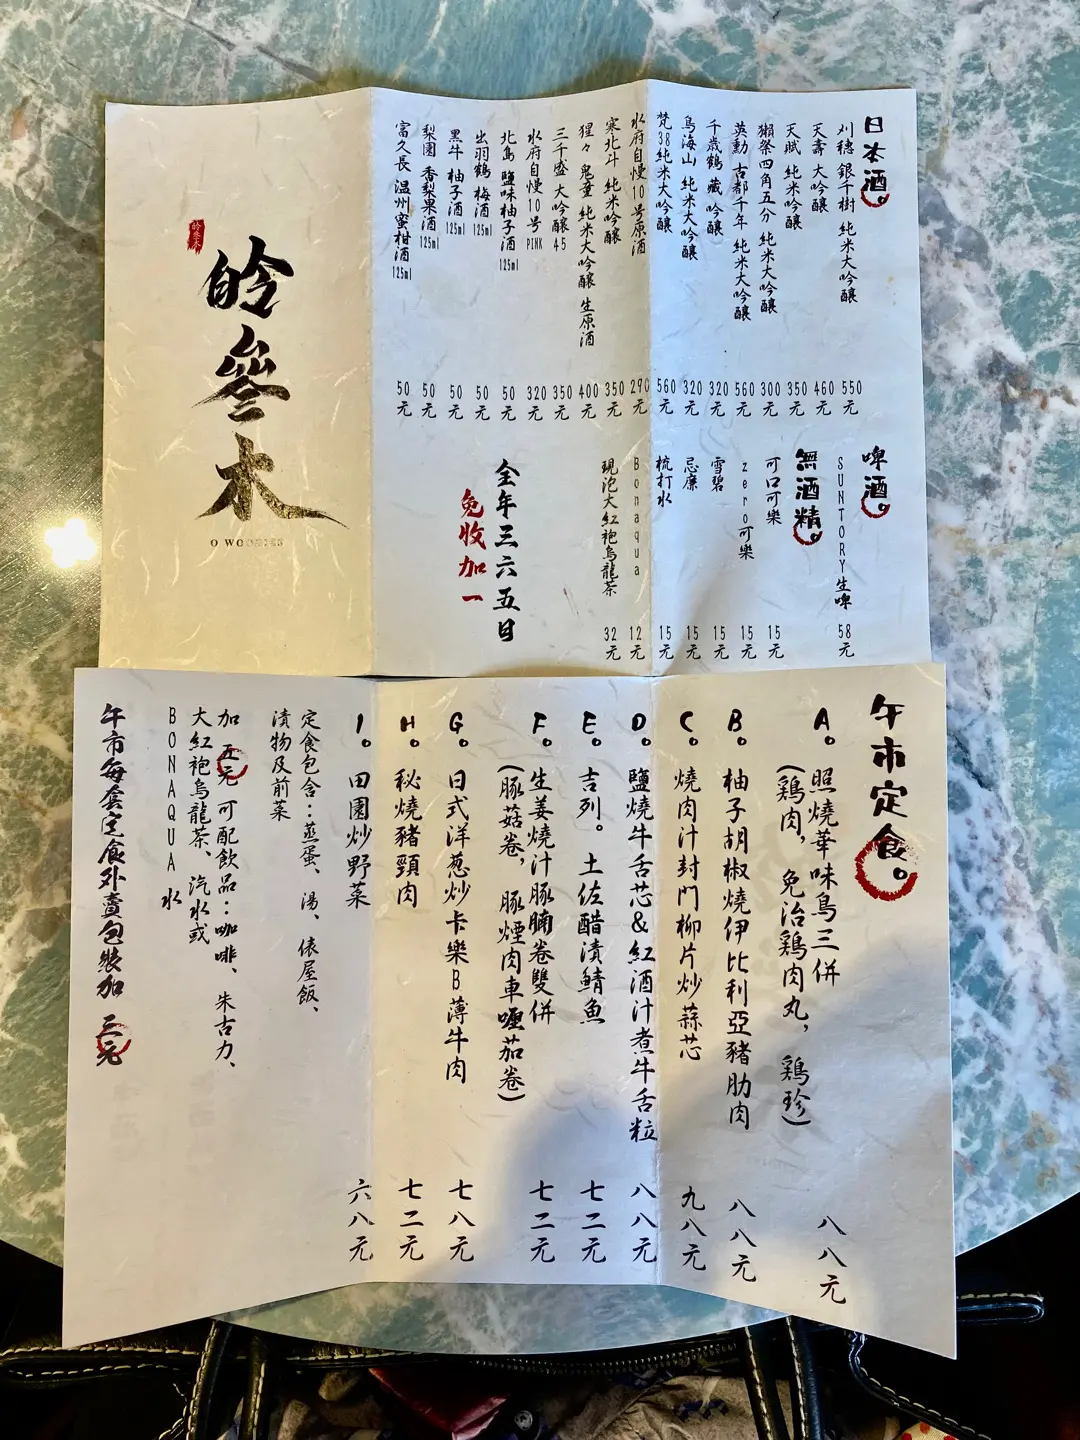 日本酒。
刈穗 銀千樹 純米大吟釀 550元
天壽 大吟釀 460元
天賦 純米吟釀 350元
獺祭四角五分 純米大吟釀 300元
英勳 古都千年 純米大吟釀 560元
千歲鶴 藏 吟釀 320元
鳥海山 純米大吟釀 320元
梵38純米大吟釀 560元
水府自慢10号原酒 290元
寒北斗 純米吟釀 350元
猩々 鬼童 純米大吟釀 生原酒 400元
三千盛 大吟釀45 350元
水府自慢10号PINK 320元
北島 鹽味柚子酒125ml 50元
出羽鶴 梅酒125ml 50元
黑牛 柚子酒125ml 50元
梨園 香梨果酒125ml 50元
富久長 温州蜜柑酒125ml 50元
啤酒。
SUNTORY生啤 58元
無酒精。
可口可樂 15元
zero可樂 15元
雪碧 15元
忌廉 15元
梳打水 15元
Bonaqua 12元
現泡大紅袍烏龍茶 32元
全年三六五日
免收加一
皊參木
皊參木
O WOODIES
午市定食。
A。照燒華味鳥三併
(鶏肉，免治鶏肉丸，鶏珍) 八八元
B。柚子胡椒燒伊比利亞豬肋肉 八八元
C。燒肉汁封門柳片炒蒜芯 九八元
D。鹽燒牛舌芯&紅酒汁煮牛舌粒 八八元
E。吉列。土佐醋漬鯖魚 七二元
F。生姜燒汁豚腩卷雙併
(豚菇卷，豚煙肉車喱茄卷) 七二元
G。日式洋葱炒卡樂B薄牛肉 七八元
H。秘燒豬頸肉 七二元
I。田園炒野菜 六八元
定食包含：蒸蛋、湯、俵屋飯、
漬物及前菜
加 五元 可配飲品：咖啡、朱古力、
大紅袍烏龍茶、汽水或
BONAQUA 水
午市每套定食外賣包裝加 三元